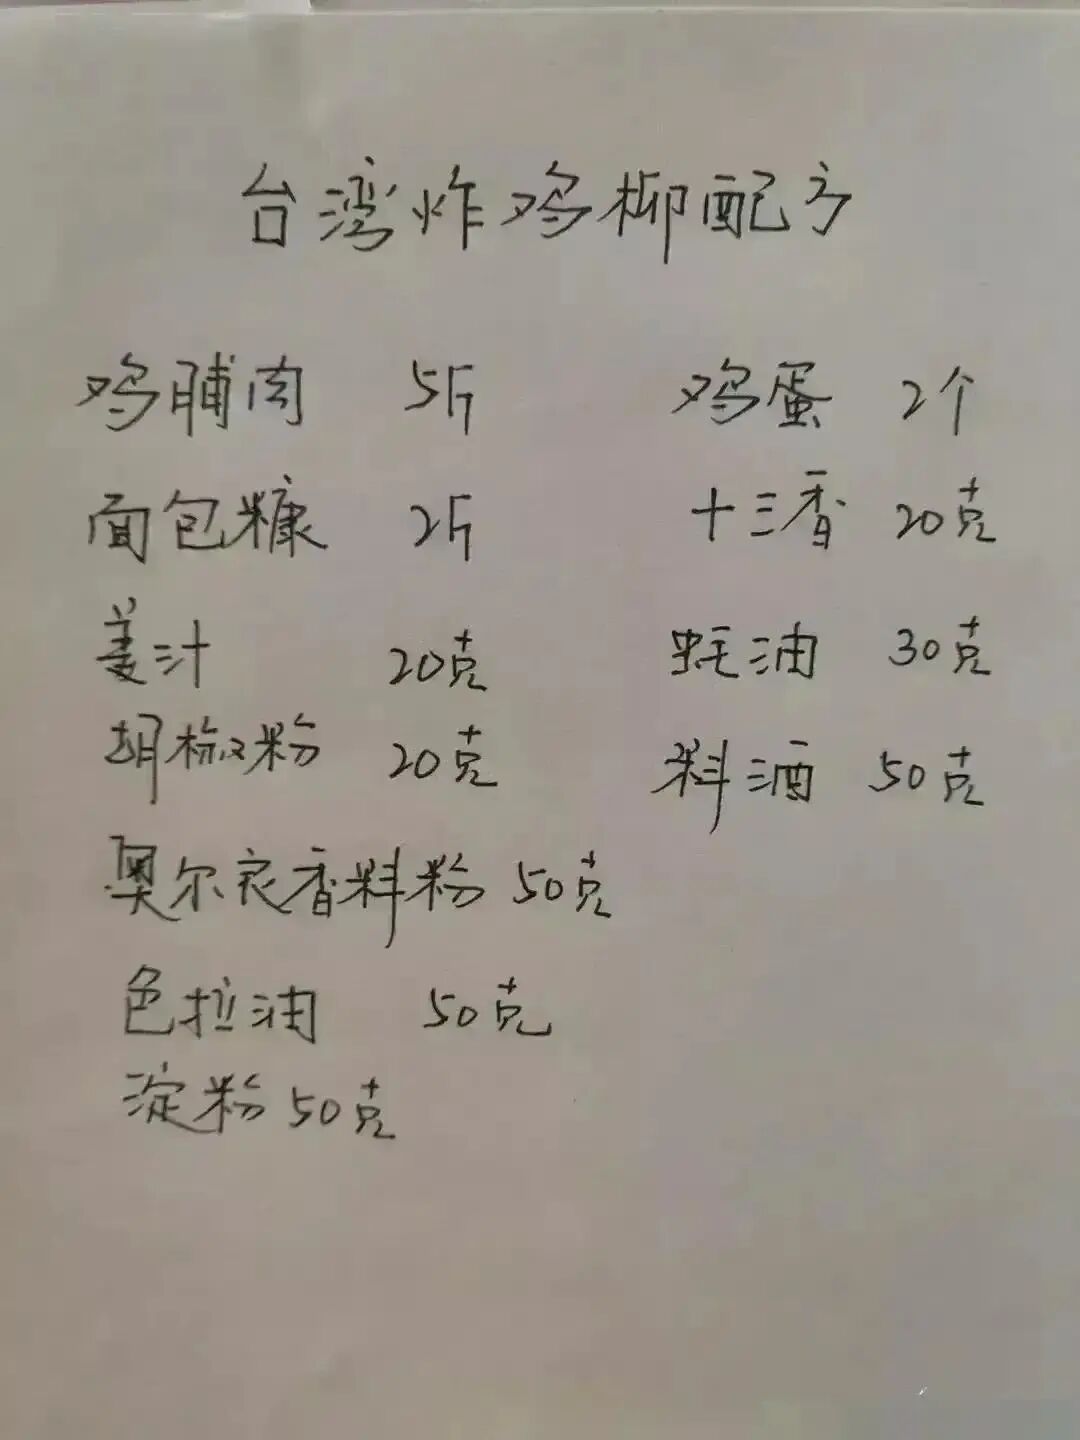 台湾炸鸡柳配方
鸡脯肉 5斤 鸡蛋 2个
面包糠 2斤 十三香 20克
姜汁 20克 蚝油 30克
胡椒粉 20克 料酒 50克
奥尔良香料粉 50克
色拉油 50克
淀粉 50克